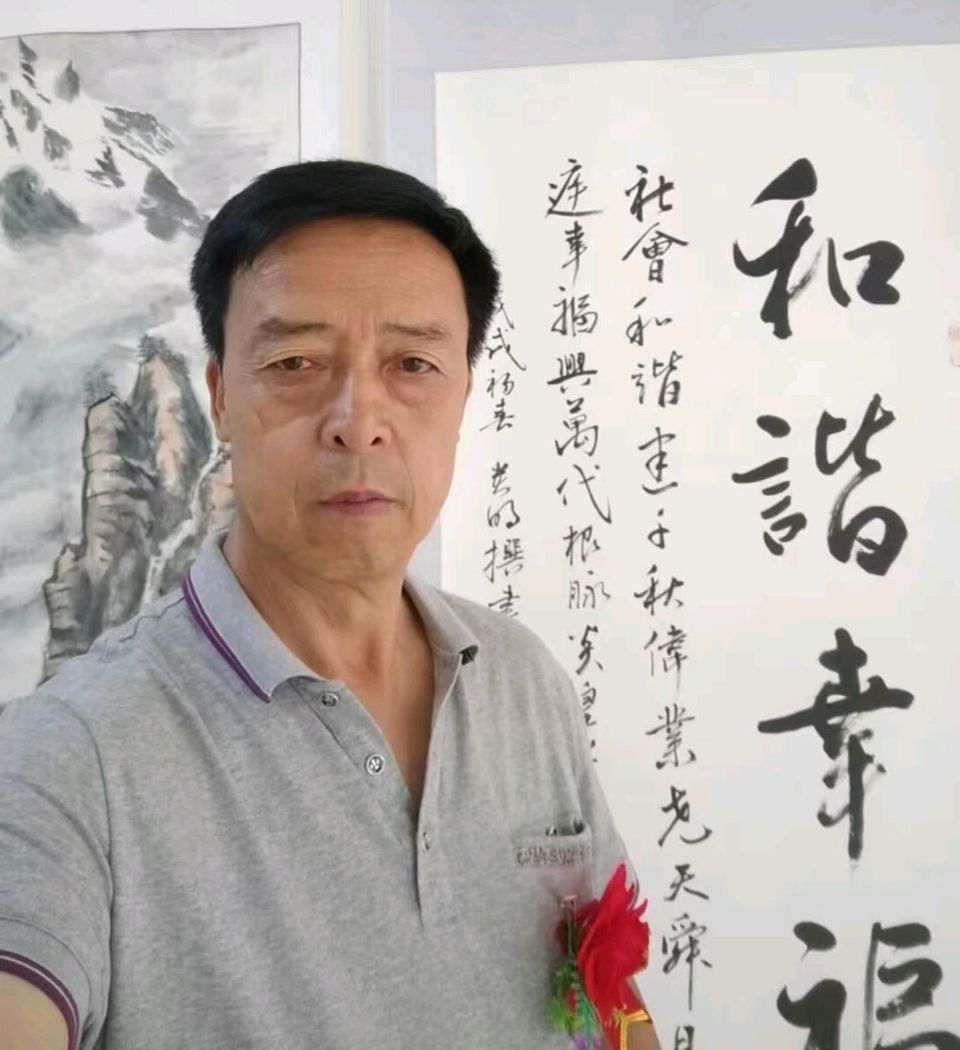 和諧幸福
社會和諧建千秋偉業尧天舜日
庭幸福興萬代根脉炎
戌初春 明撰書